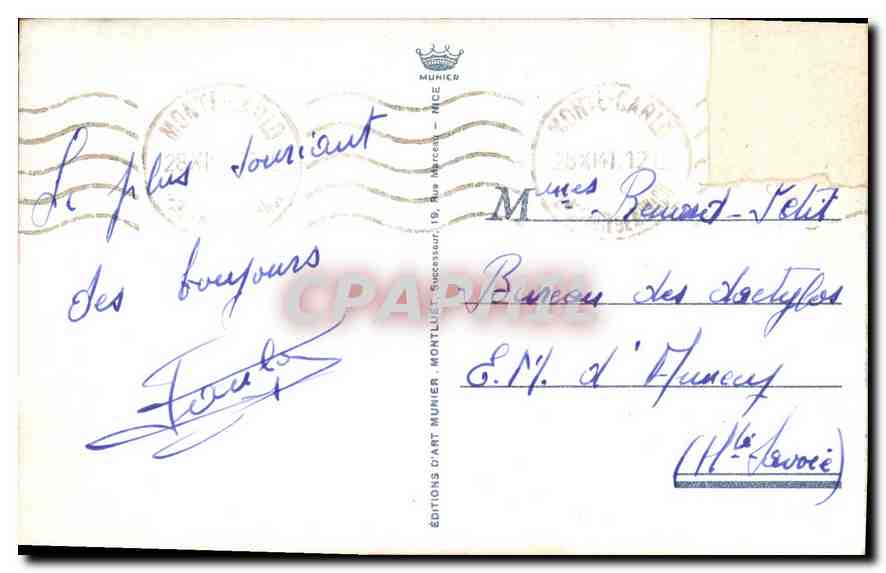 MUNIER
MONTE-CARLO
MONTE-CARLO
28 XI 41 12
Le plus souriant
des toujours
Mmes -Petit
Bureau des dactylos
E.M. d'Annecy
(Hte Savoie)
ÉDITIONS D'ART MUNIER. MONTLUET, Successeur, 19, Rue Marceau - NICE
CPAPHIL